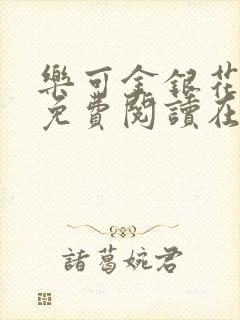 樂可金銀花
免費閱讀在
諸葛婉君